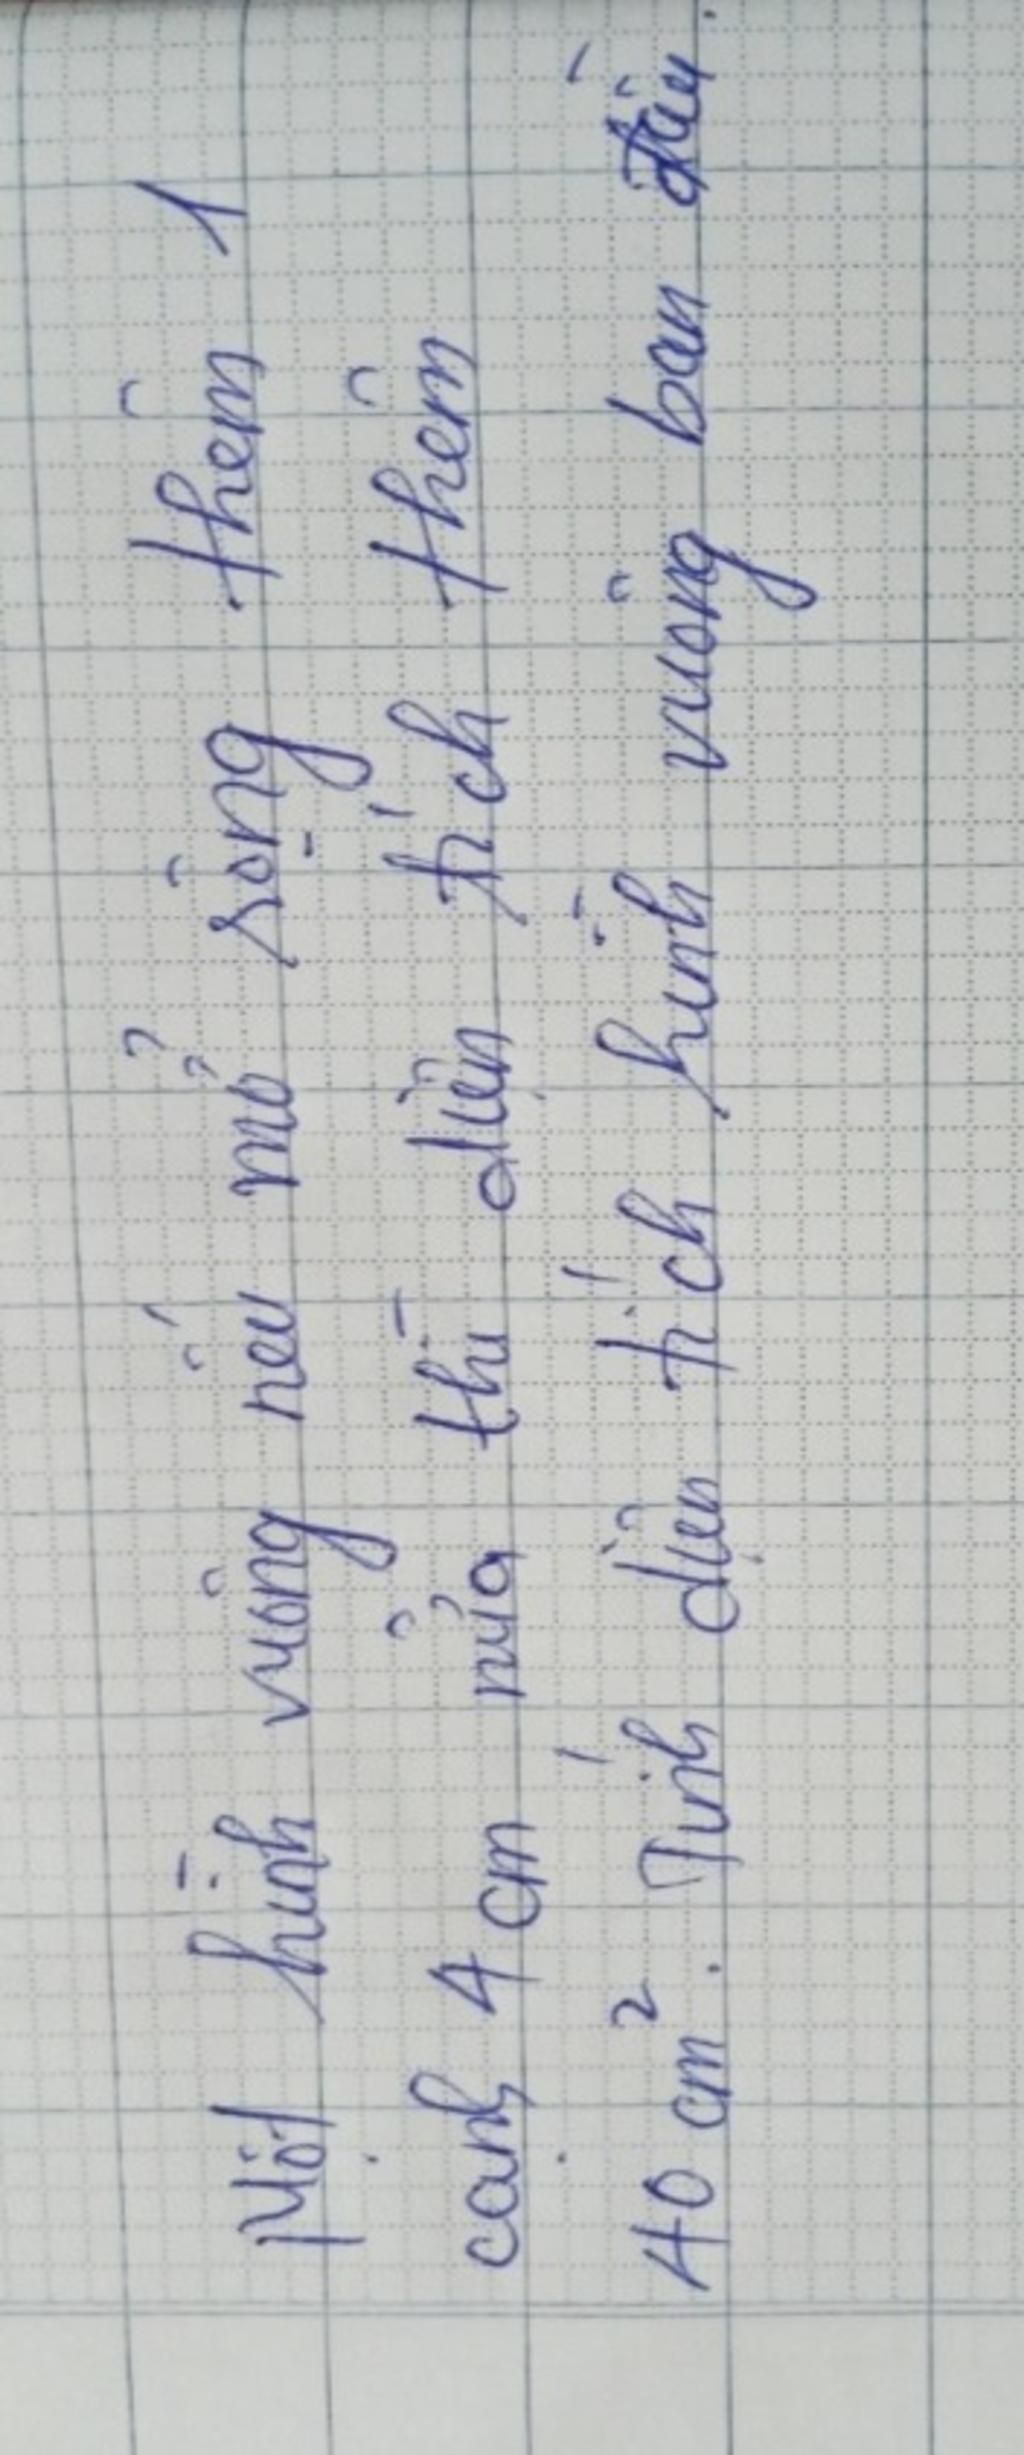 Một hình vuông nếu mở rộng thêm 1
cạnh 4 cm nữa thì diện tích thêm
40 cm². Tính diện tích hình vuông ban đầu.